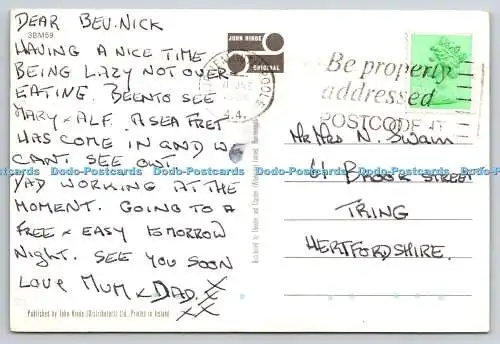 DEAR BEV. NICK
3BM59
HAVING A NICE TIME
BEING LAZY NOT OVER
EATING. BEEN TO SEE
MARY & ALF. A SEA FRET
HAS COME IN AND WE
CANT SEE OUT.
DAD WORKING AT THE
MOMENT. GOING TO A
FREE & EASY TOMORROW
NIGHT. SEE YOU SOON
LOVE MUM & DAD. X
XX
Published by John Hinde (Distributors) Ltd., Printed in Ireland
JOHN HINDE
ORIGINAL
Be properly
addressed
POSTCODE IT
MR MRS N. SWAIN
61 BROOK STREET
TRING
HERTFORDSHIRE.
Dodo-Postcards Dodo-Postcards Dodo-Postcards Dodo-Postcards Dodo-Postcards Dodo-Postcards